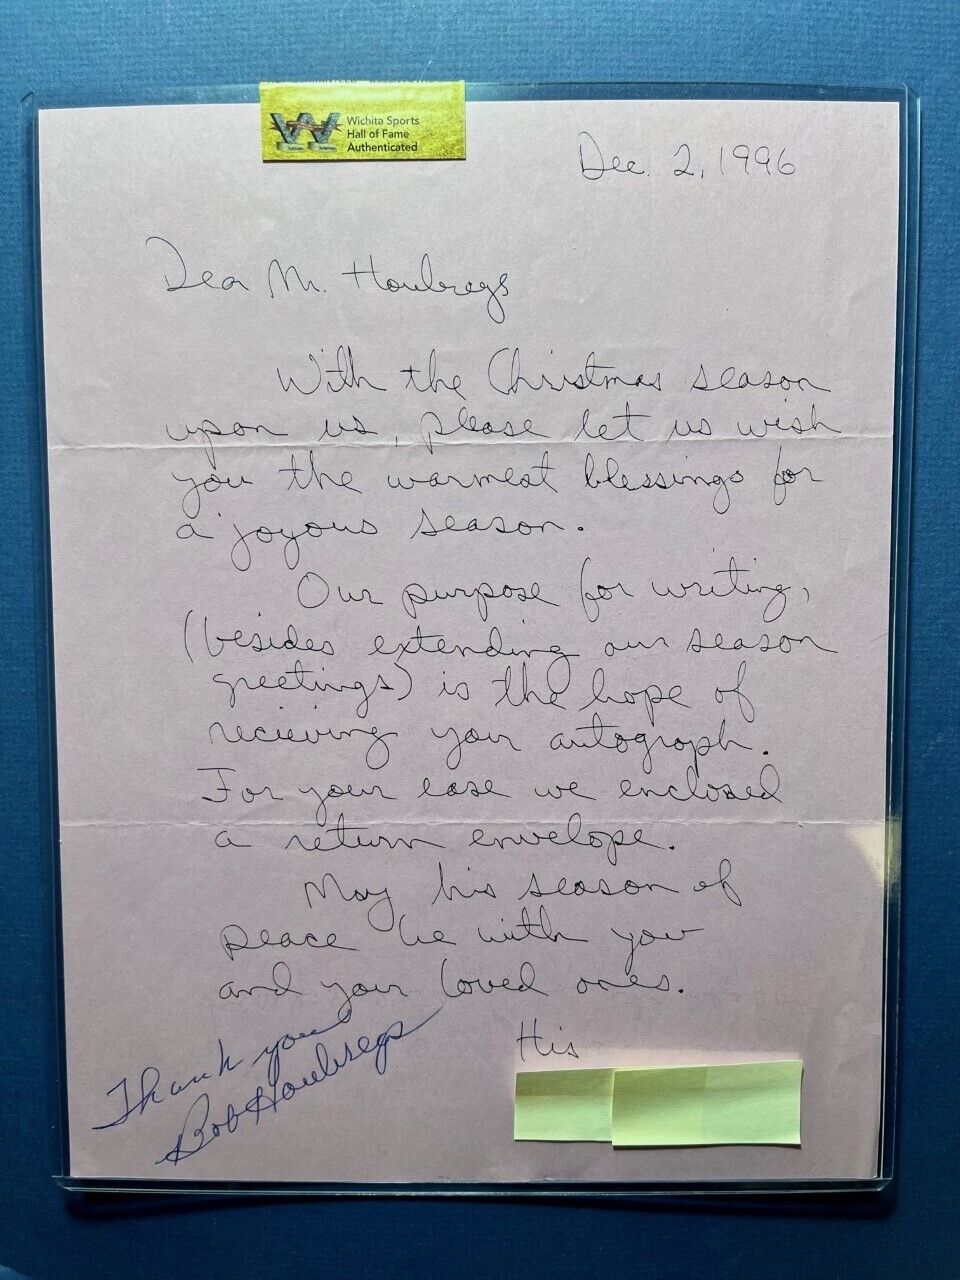 Wichita Sports
Hall of Fame
Authenticated
Dec. 2, 1996
Dear Mr. Houbregs
With the Christmas season
upon us, please let us wish
you the warmest blessings for
a joyous season.
Our purpose for writing,
(besides extending our season
greetings) is the hope of
recieving your autograph.
For your ease we enclosed
a return envelope.
May his season of
peace be with you
and your loved ones.
His
Thank you
Bob Houbregs